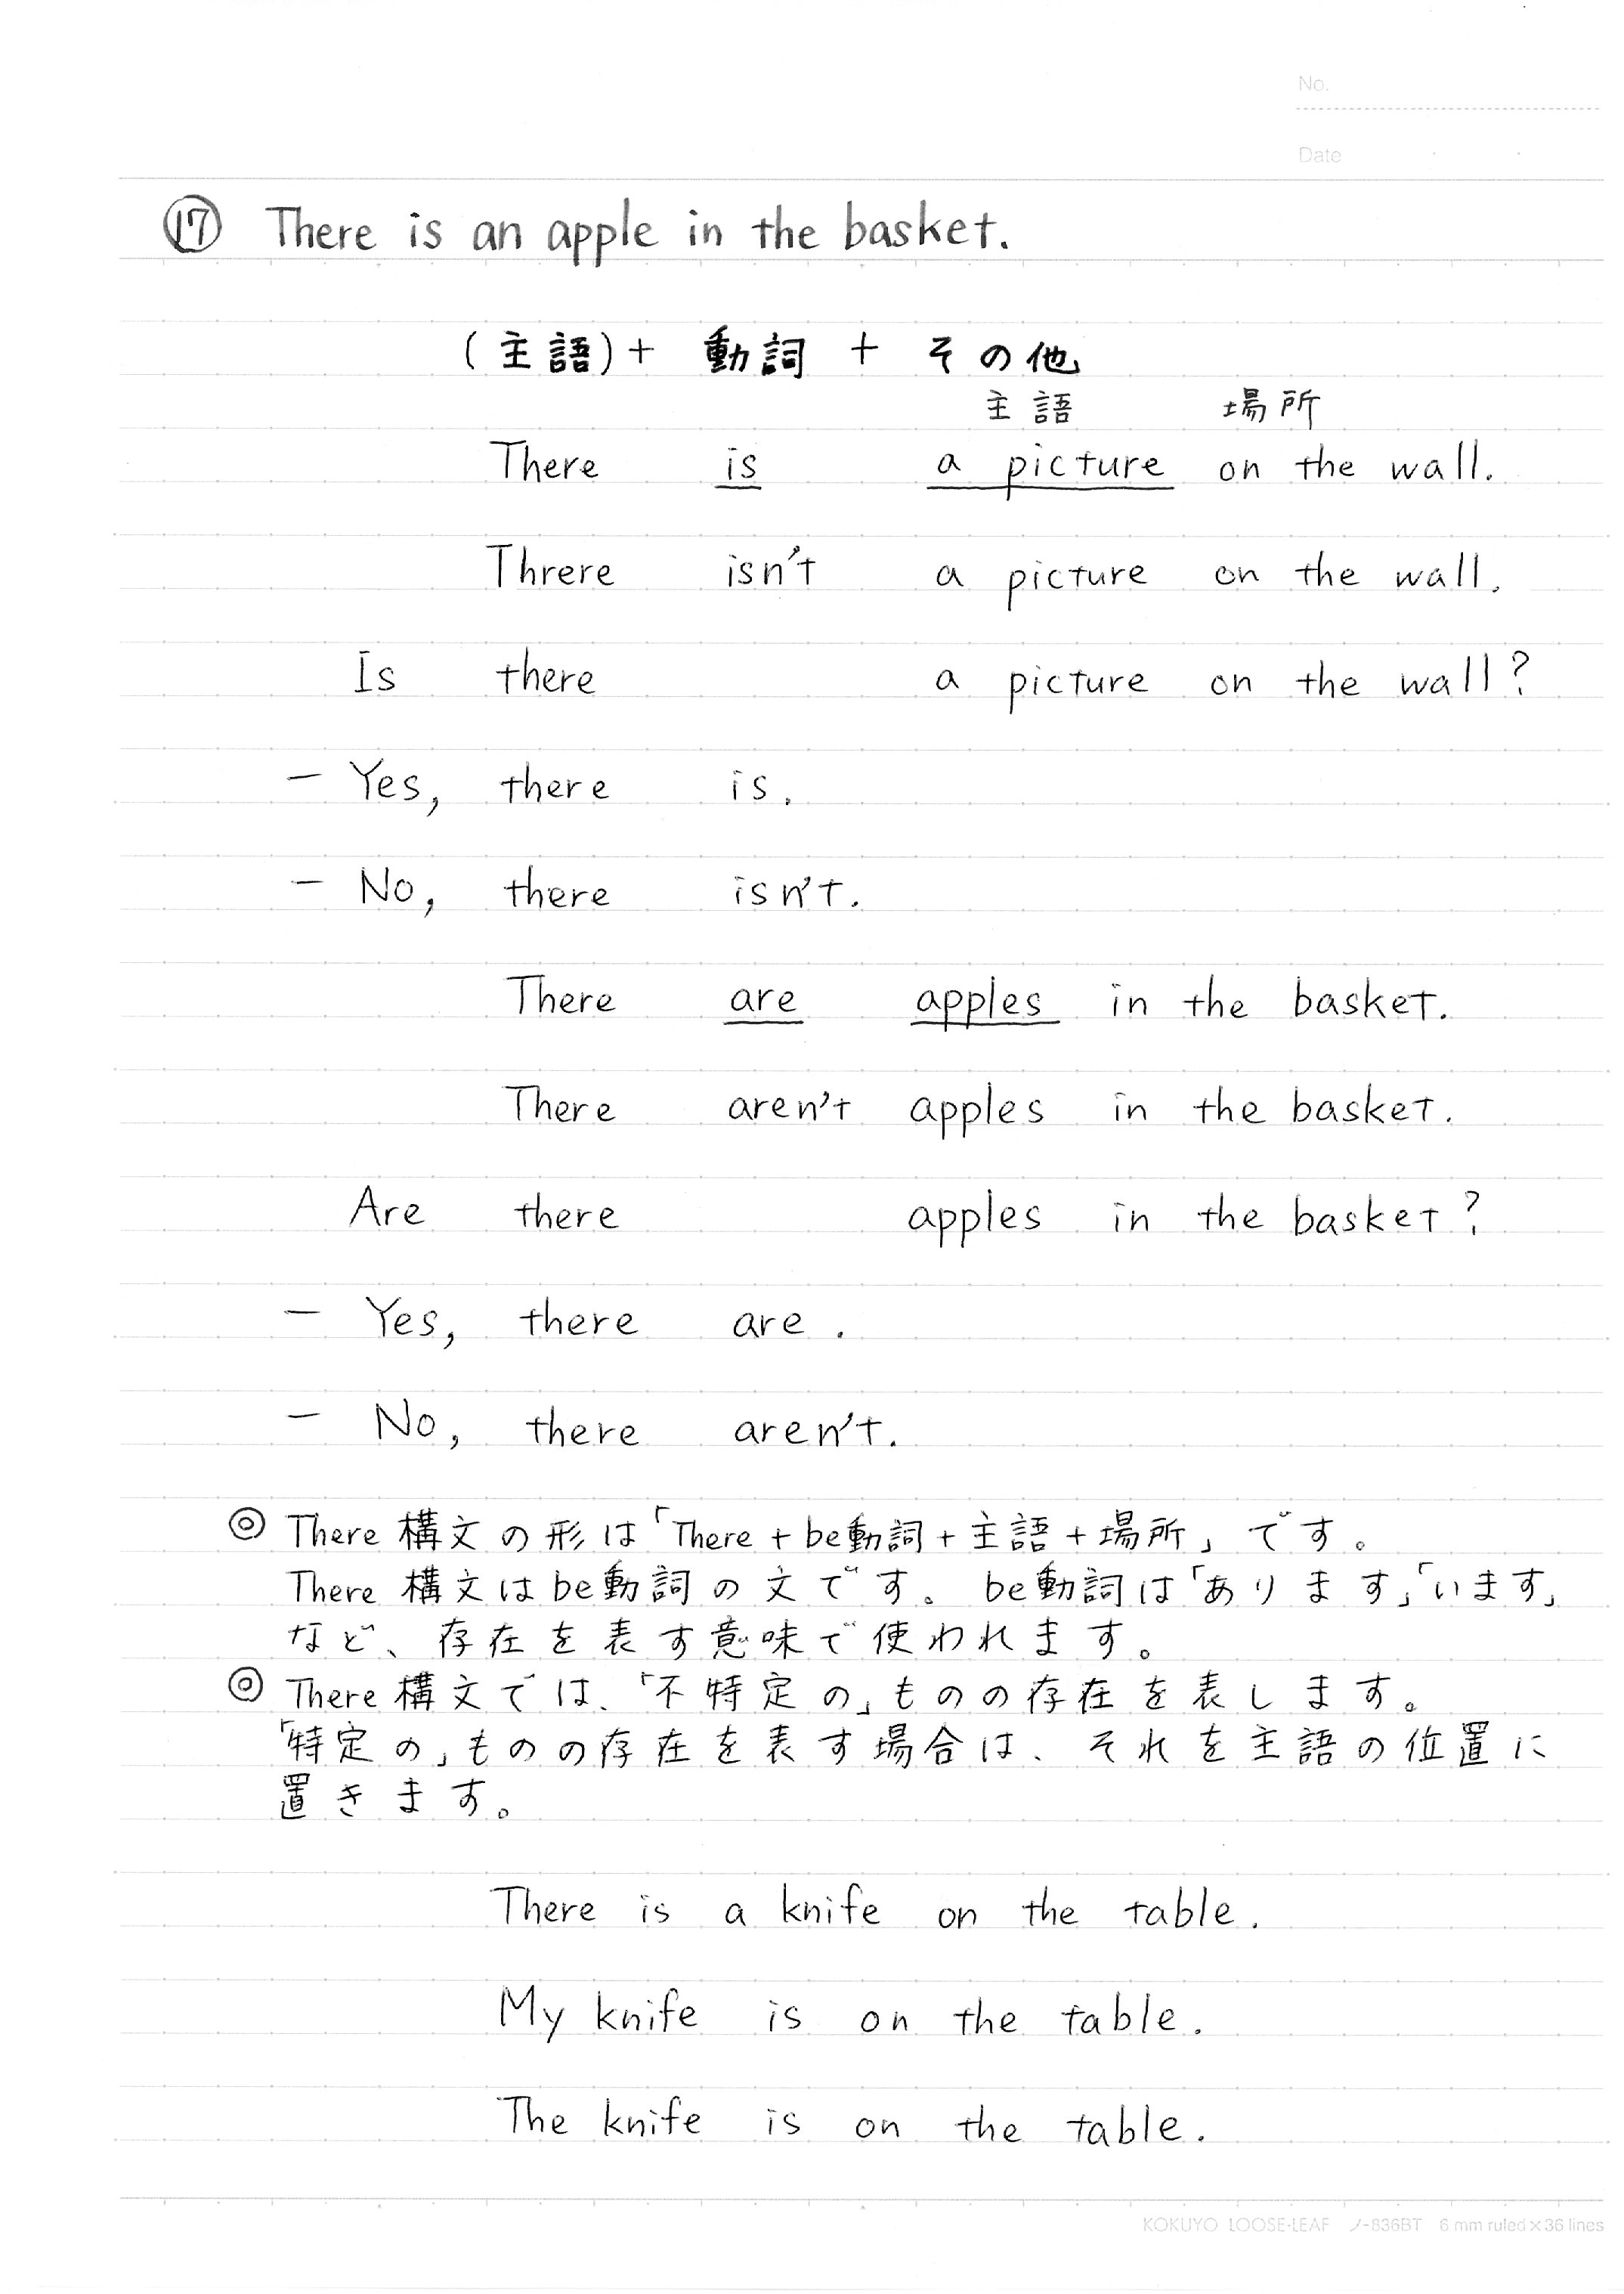 No.
Date
⑰ There is an apple in the basket.
(主語)+ 動詞 + その他
主語 場所
There is a picture on the wall.
Threre isn't a picture on the wall.
Is there a picture on the wall?
- Yes, there is.
- No, there isn't.
There are apples in the basket.
There aren't apples in the basket.
Are there apples in the basket?
- Yes, there are.
- No, there aren't.
◎ There構文の形は「There + be動詞+主語+場所」です。
There構文はbe動詞の文です。be動詞は「あります」「います」
など、存在を表す意味で使われます。
◎ There構文では、「不特定の」ものの存在を表します。
「特定の」ものの存在を表す場合は、それを主語の位置に
置きます。
There is a knife on the table.
My knife is on the table.
The knife is on the table.
KOKUYO LOOSE-LEAF ノ-836BT 6 mm ruled×36 lines